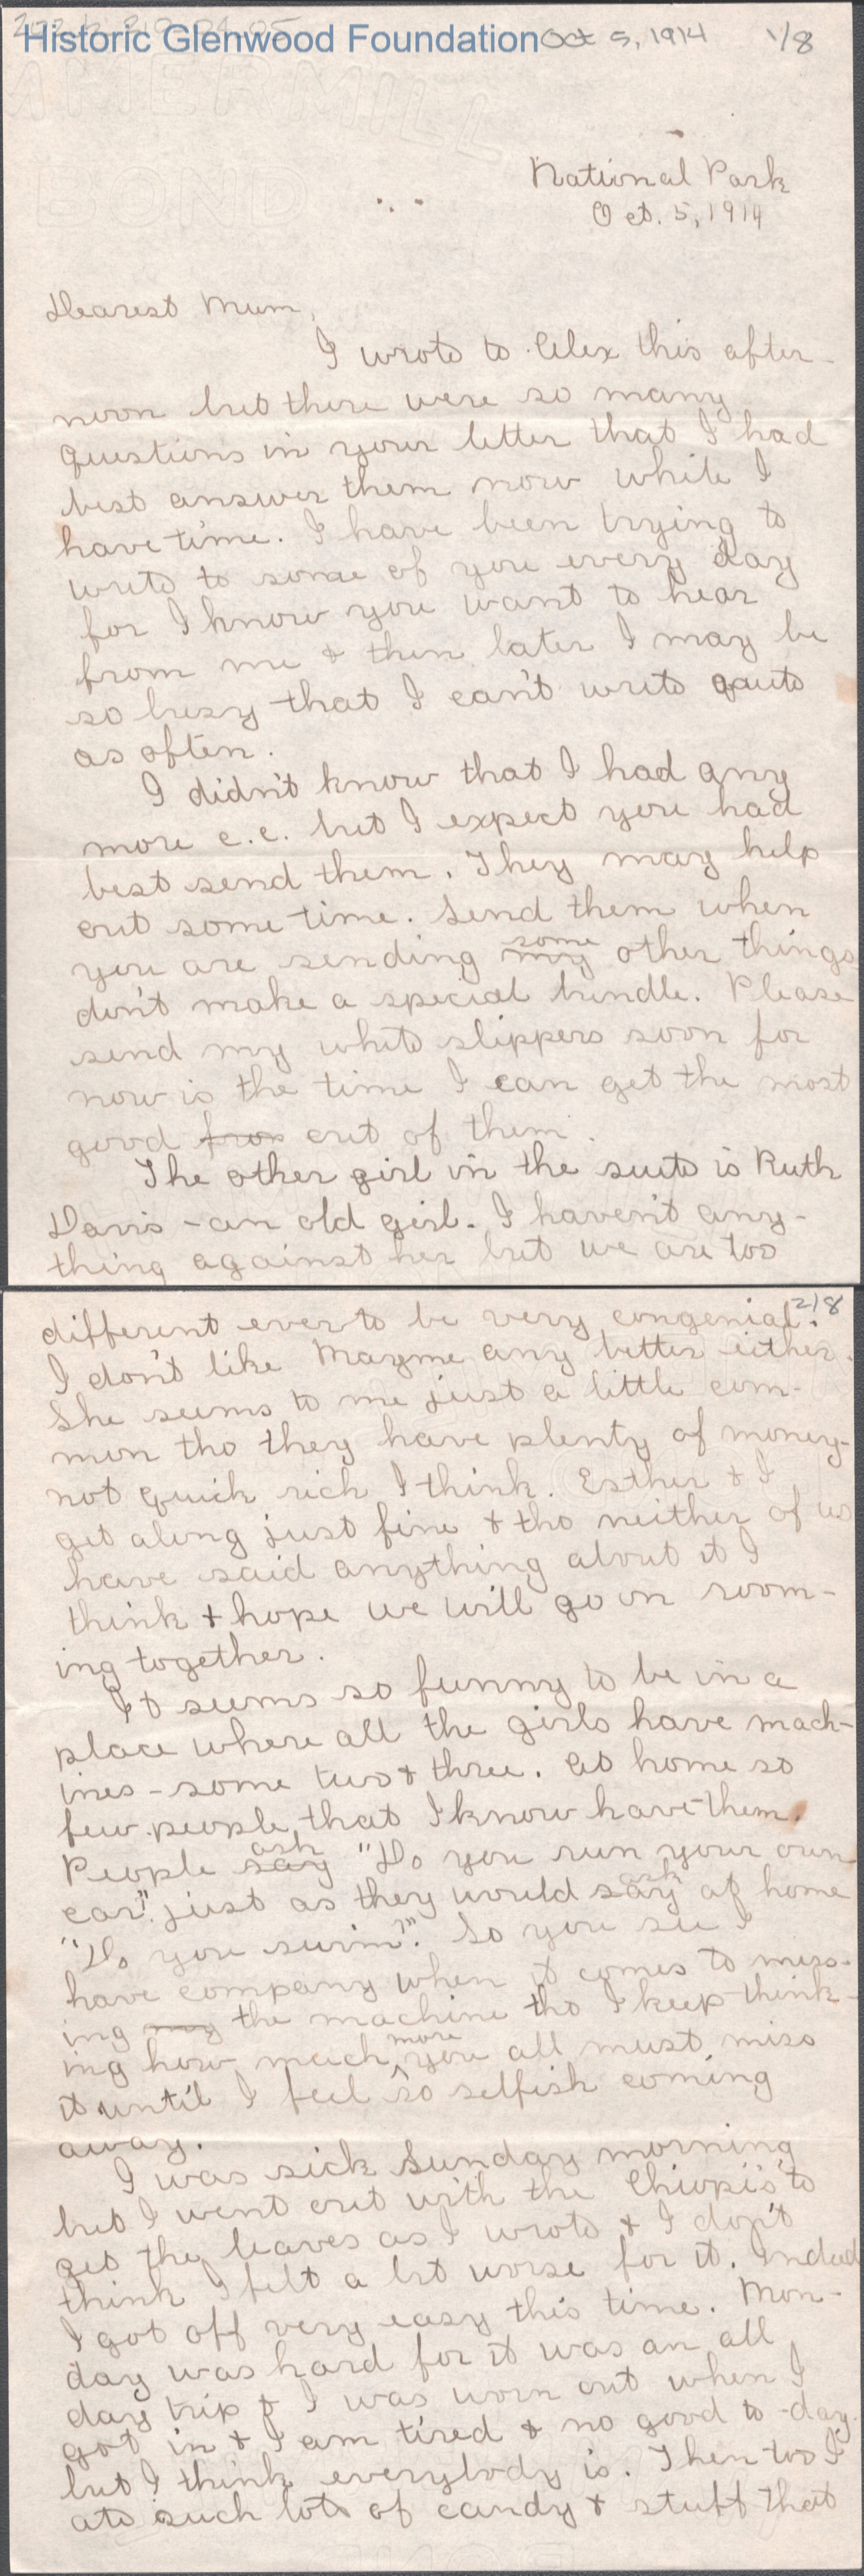 Historic Glenwood Foundation Oct 5, 1914 1/8
HAMMERMILL
BOND
National Park
Oct. 5, 1914
Dearest Mum,
I wrote to Alex this after-
noon but there were so many
questions in your letter that I had
best answer them now while I
have time. I have been trying to
write to some of you every day
for I know you want to hear
from me & then later I may be
so busy that I can't write quite
as often.
I didn't know that I had any
more c.c. but I expect you had
best send them. They may help
out some time. Send them when
you are sending my some other things
don't make a special bundle. Please
send my white slippers soon for
now is the time I can get the most
good from out of them.
The other girl in the suite is Ruth
Davis - an old girl. I haven't any-
thing against her but we are too
2/8
different ever to be very congenial.
I don't like Mayme any better either.
She seems to me just a little com-
mon tho they have plenty of money-
not quick rich I think. Esther & I
get along just fine & tho neither of us
have said anything about it I
think & hope we will go on room-
ing together.
It seems so funny to be in a
place where all the girls have mach-
ines - some two & three. At home so
few people that I know have them.
People say ask "Do you run your own
car". just as they would say ask at home
"Do you swim?". So you see I
have company when it comes to miss-
ing my the machine tho I keep think-
ing how much more you all must miss
it until I feel so selfish coming
away.
I was sick Sunday morning
but I went out with the Chiopi's to
get the leaves as I wrote & I don't
think I felt a bit worse for it. Indeed
I got off very easy this time. Mon-
day was hard for it was an all
day trip & I was worn out when I
got in & I am tired & no good to-day.
but I think everybody is. Then too I
ate such lots of candy & stuff that